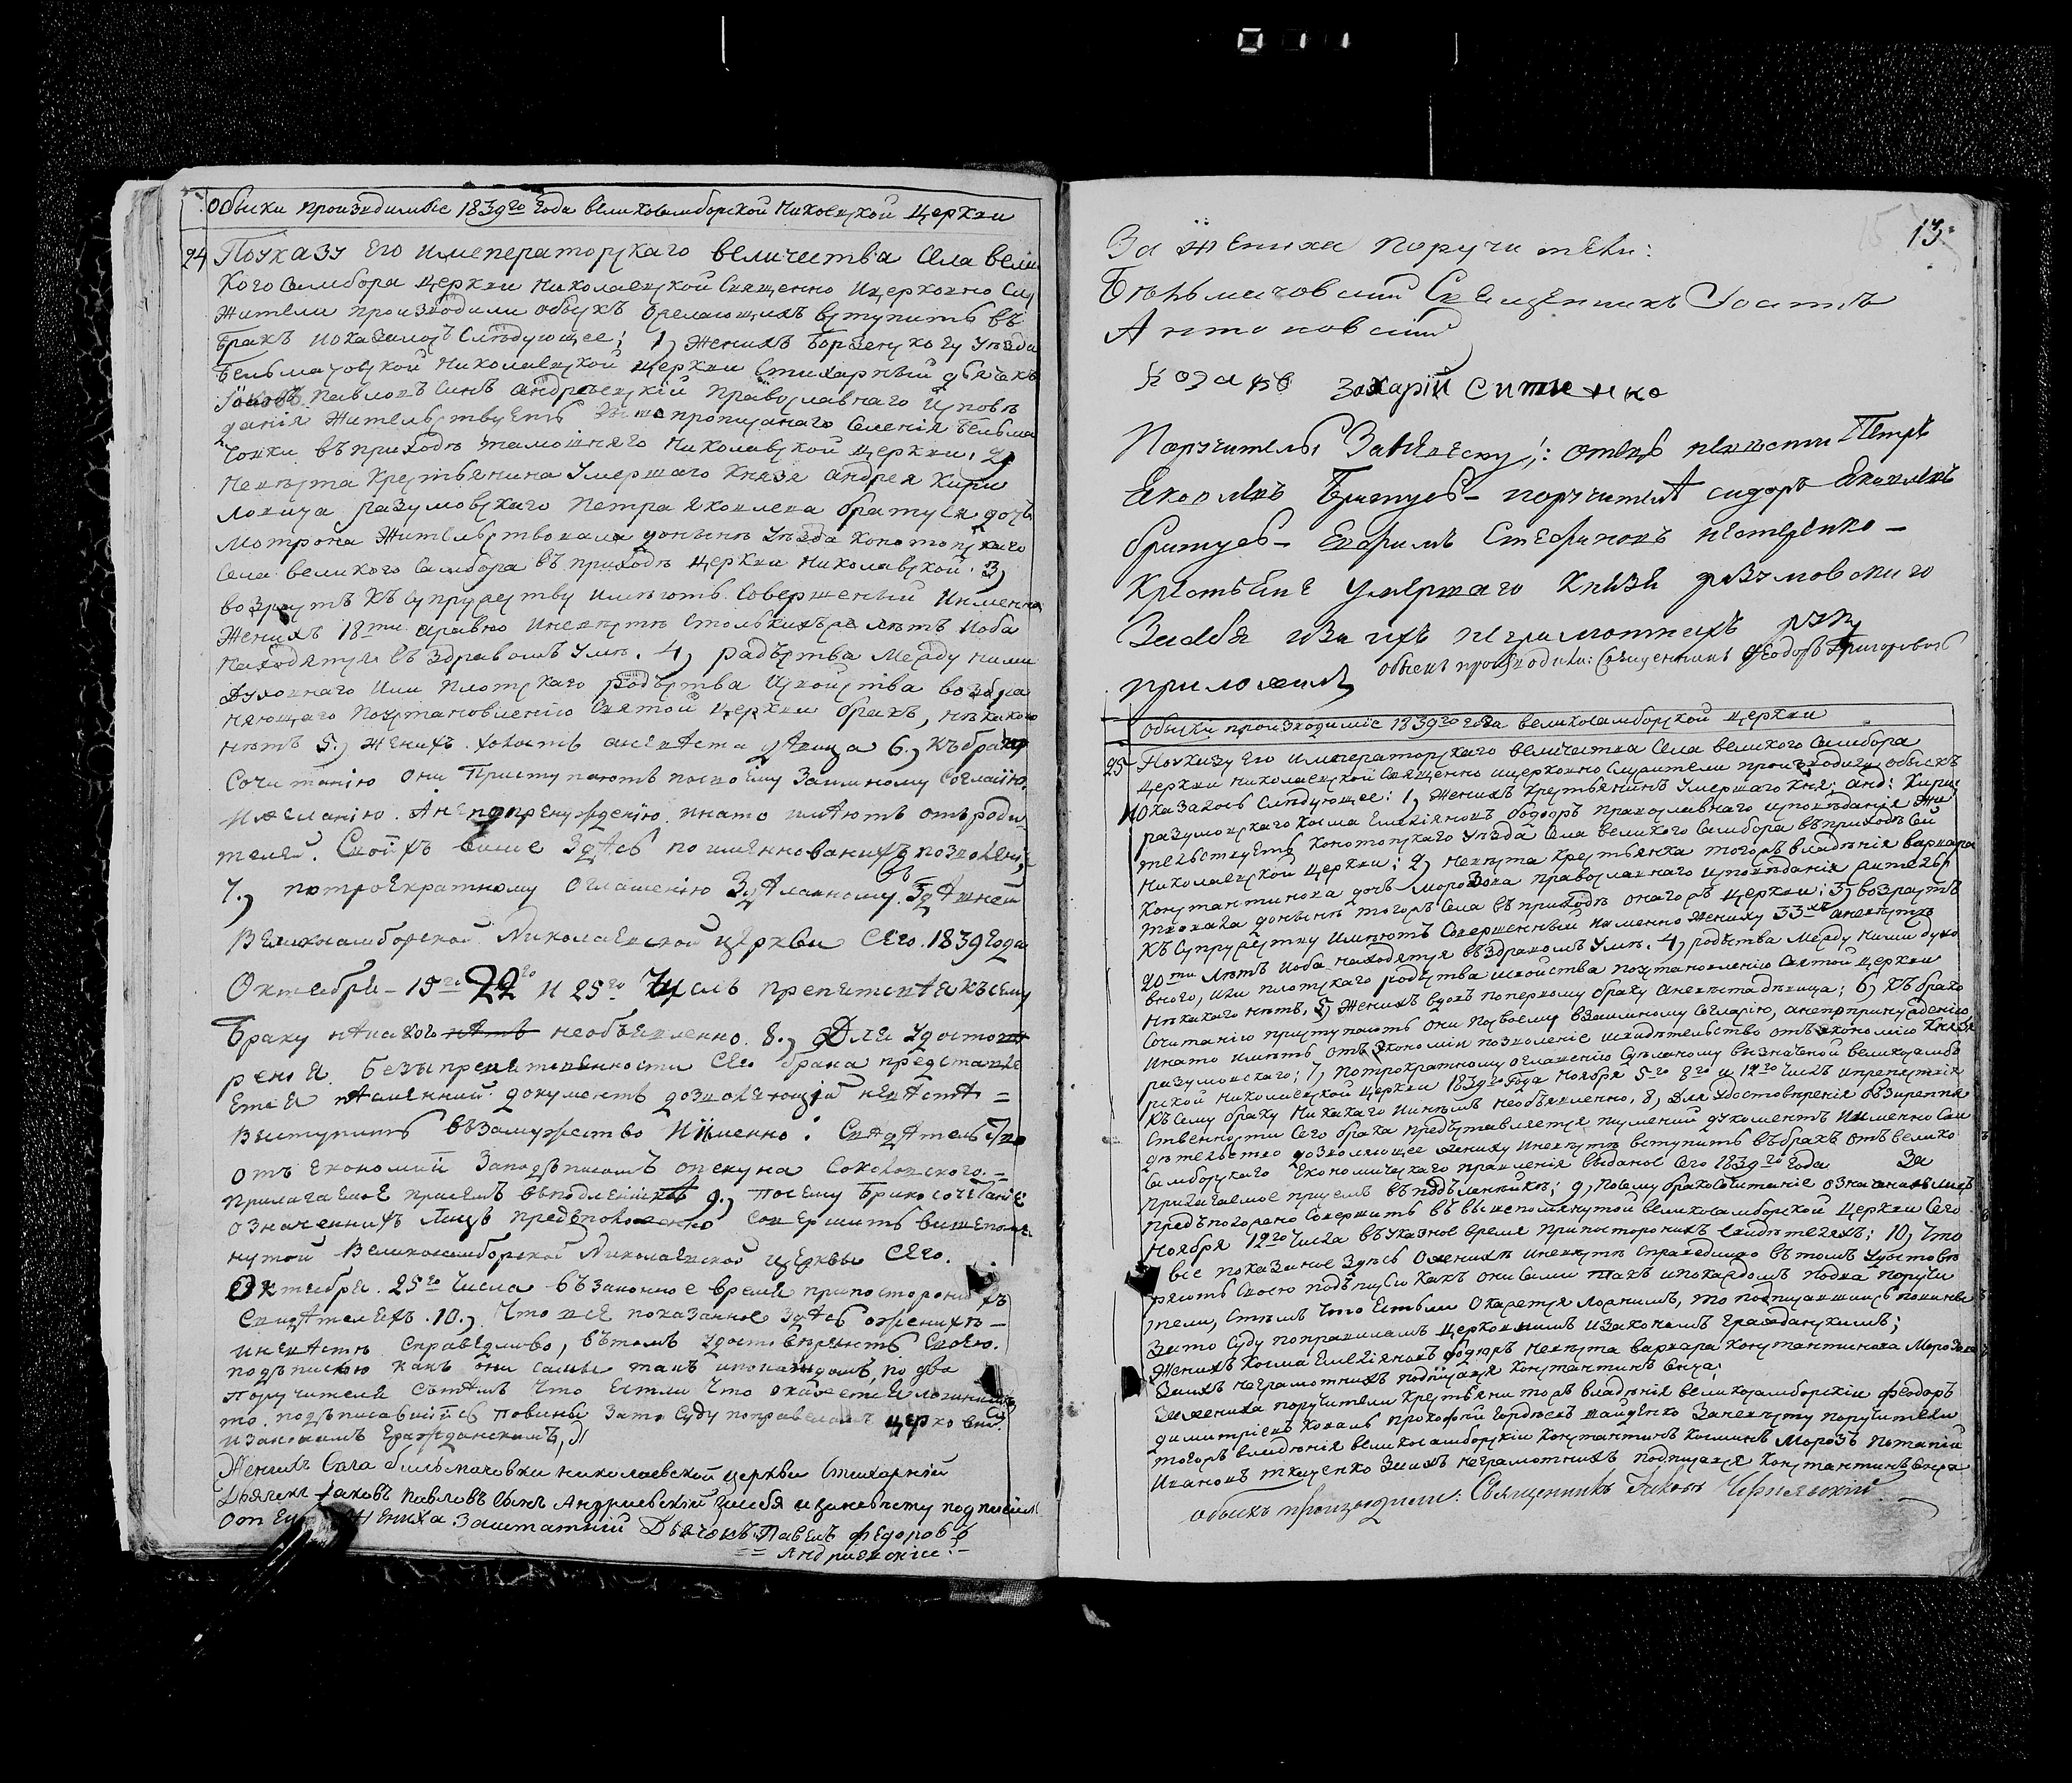 Обыски произвидимые 1839го года великосамборской Николаевской церкви
24 По указу Его императорскаго величества села вели
кого Самбора церкви Николаевской священно и церковно слу
жители производили обыскъ желающихъ вступить въ
бракъ и оказалось следующее; 1, женихъ Борзенского уезда
Бельмачовской Николаевской церкви стихарный дьячекъ
Іаковъ Павловъ синъ Андріевскій православнаго исповѣ
данія жительствуетъ прописанаго селенія Бельма
човки въ приходѣ тамошняго Николавской церкви, 2,
Невѣста крестьянина умершаго князя Андрея Кири
ловича разумовскаго Петра Яковлева братуся дочь
Мотрона жительствовала донынѣ уезда конотопскаго
села великого Самбора въ приходѣ церкви Николавской. 3,
возрастъ къ супружеству имеютъ совершенный именно
женихъ 18ти а равно и невѣста столькихъ же лѣтъ и оба
находятся въ здравомъ умѣ. 4, радства между ними
духовнаго или плотскаго родъства и свойства возбра
няющаго по установлению святой церкви бракъ, никакого
нѣтъ 5, женихъ холостъ а невѣста дѣвица 6, къ брако
сочитанію они приступаютъ по своему взаимному согласію
и желанію. А не по принужденію и на то имѣютъ отъ роди
телей. своихъ више здѣсь поименнованихъ позволеніе
7, по троекратному оглашенію здѣланному здѣшней
Великосамборской Николаевской церкви сего. 1839 года
Октября - 15го 22го и 25го числъ препятствія къ сему
браку нѣкакого необъявленно. 8, Для удостове
ренія безъпрепятственности сего брака представля
ется писменний документъ дозволяющій невѣстѣ =
выступить въ замужество и именно: свидѣтельство
отъ економіи за подъписомъ опекуна Соколовского. =
прилагаемое присемъ въ подленникѣ 9, посему бракосочетаніе
означеннихъ лицъ предположенно совершить вишепомя
нутой Великосамборской Николаевской церкви сего.
Октября. 25го числа въ законное время при постороннихъ
свидѣтеляхъ. 10, Что все показанное здѣсь о женихѣ -
и невѣстѣ справедливо, въ томъ удостовѣряютъ своею.
подъписью какъ они сами такъ и по каждомъ, по два
поручителя сътѣмъ что естли что окажется ложнимъ
то. подъписавшійсь повины за то суду по правиламъ церковни
и законамъ гражданскимъ,
Женихъ села бильмачовки николаевской церкви стихарній
Дьячекъ Іаковъ Павловъ сынъ Андриевскій за себя и за невѣсту подписалъ
Отецъ жениха заштатній Дьячокъ Павелъ Федоровъ
== Андриевскій =
13
За жениха поручители:
Бельмачовский Священникъ
Антоновский
козакъ Захарій Ситненко
Поручители за невесту: отецъ невести Петръ
Яковлевъ Братусь - поручителѣ сидоръ Яковлевъ
братусь - Ефримъ Стефановъ нестеренко -
Крестьяне умершаго князя разумовского
За себя и за ихъ неграмотнихъ руку
приложилъ
обыскъ произходили: Священникъ Феодоръ Григоровичъ
Обыски производимие 1839го года великосамборской церкви
25 По указу его императорскаго величества села великого Самбора
церкви Николаевской священно и церковно служители произходили обыскъ
и оказалось следующее: 1, женихъ крестьянинъ умершаго кня: Анд: Кири:
разумовскаго Косма Емелiяновъ бодюръ православнаго исповѣданія жи
тельствуетъ конотопскаго уезда села великого Самбора въ приходѣ сей
Николаевской церкви; 2, невѣста крестьянка того жъ владѣнія варвара
Константинова дочь Морозова православнаго исповѣданія жительс
твовала донынѣ того жъ села въ приходѣ оного жъ церкви: 3, возрастъ
къ супружетву имеютъ совершенный именно жениху 33хъ а невѣста
20ти лѣтъ и оба находятся въ здравомъ умѣ. 4, родства между ними духо
вного, или плотскаго родства и свойства по установленію святой церкви
нѣкакаго нѣтъ, 5, женихъ вдовъ по первому браку а невѣста дѣвица; 6, къ брако
сочитанію приступаютъ они по своему взаимному согласію, а не по принужденію,
и на то имеютъ отъ экономіи позволеніе и свидѣтельство отъ экономіи князя
разумовскаго; 7, по трократному оглашенію сдѣланному въ означеной великосамбо
рской Николаевской церкви 1839го года ноября 5го 8го и 12го числъ и препятствія
къ сему браку никакаго никѣмъ необъявленно, 8, для удостовѣренія безпрепят
ственности сего брака представляется писменый документъ именно сви
дѣтельство дозволяющее жениху и невѣстѣ вступить въ бракъ отъ велико
самборскаго економическаго правленія выданое сего 1839го года за
прилагаемое присемъ въ подъленникѣ; 9, посему бракосочитаніе означеныхъ лицъ
предположено совершить въ вышепомянутой великосамборской церкви сего
ноября 12го числа въ указное время при посторонихъ свидѣтеляхъ; 10, что
все показаное здѣсь о женихѣ и невѣстѣ справедливо въ томъ удостовѣ
ряютъ своею подъписью какъ они сами такъ и по каждомъ по два поручи
тели, стѣмъ что естьли окажется ложнимъ, то подписавшиись повинны
за то суду по правиламъ церковнымъ и законамъ гражданскимъ;
Женихъ Косма Емелiяновъ бодюръ невѣста варвара Константинова Морозова
за ихъ неграмотнихъ подписался Константинъ
За жениха поручители крестьяни того жъ владѣнія великосамборскіи Феодоръ
димитріевъ коваль прокофій гордѣевъ найденко за невѣсту поручители
того жъ владѣнія великосамборскіи Константинъ Косминъ Морозъ Потапій
Ивановъ ткаченко за ихъ неграмотнихъ подписался Константинъ
обыскъ производили: Священникъ Іаковъ Чернявскій